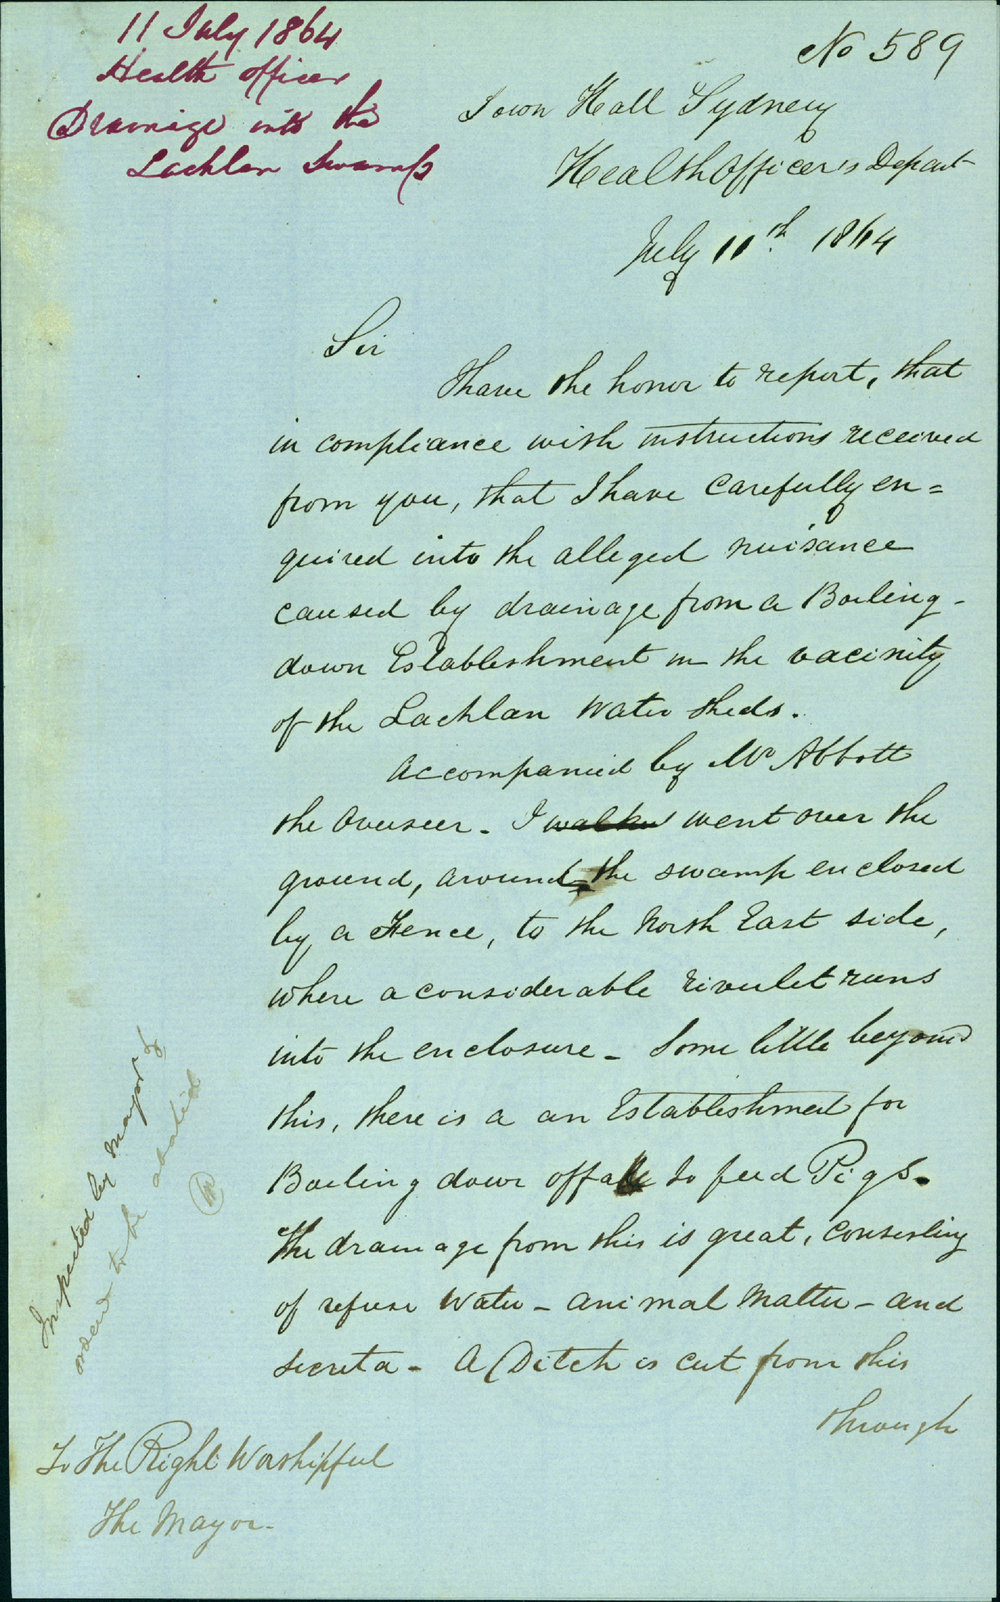 11 July 1864
Health Officer
Drainage into the
Lachlan Swamps
No 589
Town Hall Sydney
Health Officer's Depart
July 11th 1864
Sir
I have the honor to report, that
in compliance with instructions received
from you, that I have carefully en=
quired into the alleged nuisance
caused by drainage from a Boiling-
down Establishment in the vacinity
of the Lachlan Water sheds.
Accompanied by Mr Abbott
the Overseer - I walked went over the
ground, around the swamp enclosed
by a Fence, to the North East side,
where a considerable rivulet runs
into the enclosure - Some little beyond
this, there is a an Establishment for
Boiling down offall to feed Pigs.
The drainage from this is great, consisting
of refuse Water - animal Matter - and
secreta - A Ditch is cut from this
through
To The Right Worshipful
The Mayor.
Inspected by Mayor &
ordered to be abated